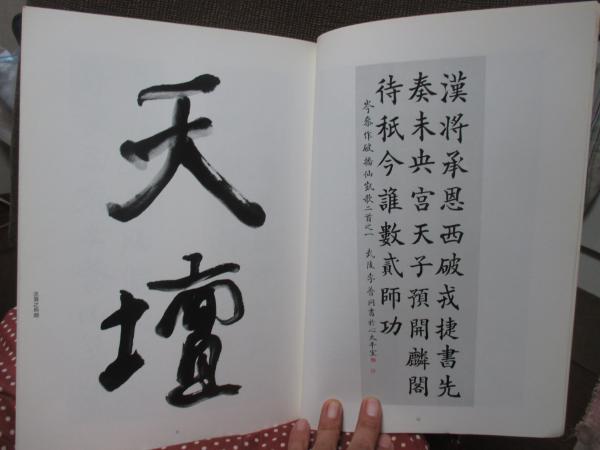 漢將承恩西破戎捷書先
奏未央宮天子預開麟閣
待秖今誰數貳師功
岑參作破播仙凱歌二首之一 武陵李普同書於心太平室
天壇